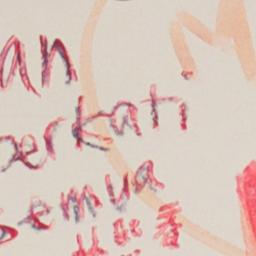 an
berkati
semua